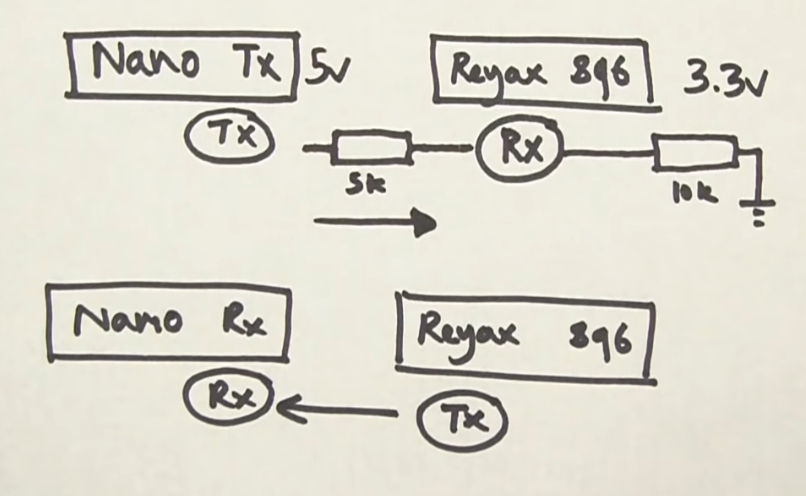 Nano Tx 5v
Reyax 896 3.3v
Tx
5k
Rx
10k
Nano Rx
Reyax 896
Rx
Tx